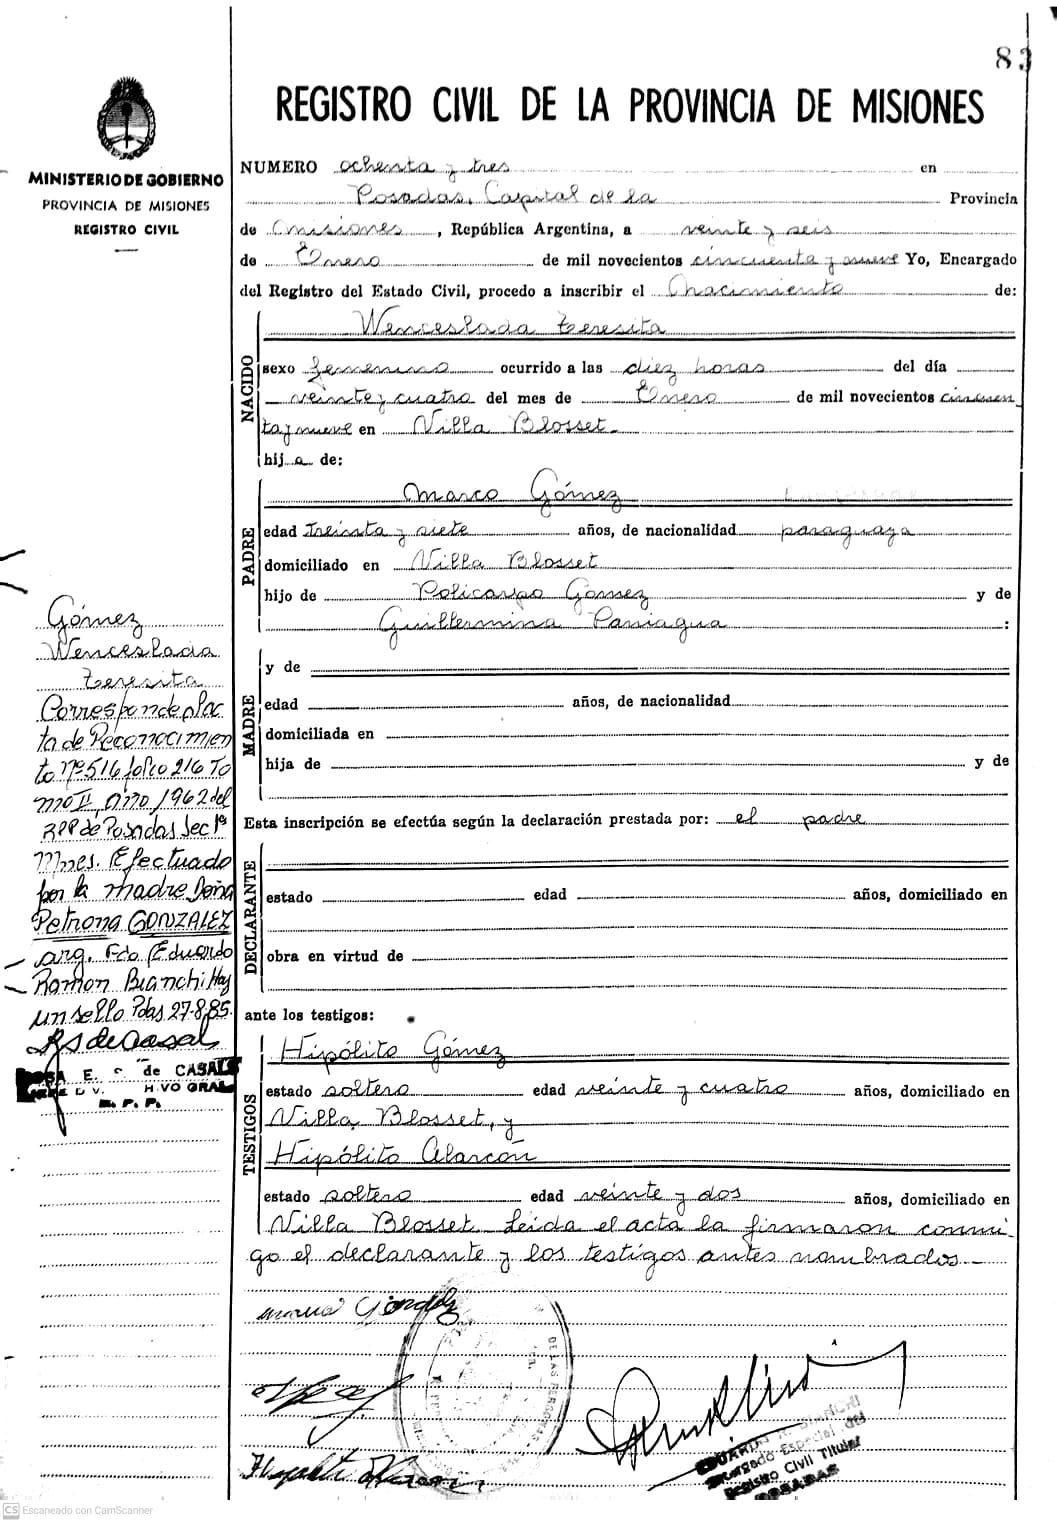 83
REGISTRO CIVIL DE LA PROVINCIA DE MISIONES
MINISTERIO DE GOBIERNO
PROVINCIA DE MISIONES
REGISTRO CIVIL
NUMERO ochenta y tres en
Posadas, Capital de la Provincia
de Misiones, República Argentina, a veinte y seis
de Enero de mil novecientos cincuenta y nueve Yo, Encargado
del Registro del Estado Civil, procedo a inscribir el Nacimiento de:
NACIDO
Wenceslada Teresita
sexo femenino ocurrido a las diez horas del día
veinte y cuatro del mes de Enero de mil novecientos cincuen
ta y nueve en Villa Blosset.
hija de:
PADRE
Marco Gómez
edad treinta y siete años, de nacionalidad paraguaya
domiciliado en Villa Blosset
hijo de Policarpo Gómez y de
Guillermina Paniagua :
MADRE
y de
edad años, de nacionalidad
domiciliada en
hija de y de
Esta inscripción se efectúa según la declaración prestada por: el padre
DECLARANTE
estado edad años, domiciliado en
obra en virtud de
ante los testigos:
TESTIGOS
Hipólito Gómez
estado soltero edad veinte y cuatro años, domiciliado en
Villa Blosset, y
Hipólito Alarcón
estado soltero edad veinte y dos años, domiciliado en
Villa Blosset. Leída el acta la firmaron conmi-
go el declarante y los testigos antes nombrados.-
Gómez
Wenceslada
Teresita
Corresponde p/ac
ta de Reconocimien
to nº 516 folio 216 To
mo II año 1962 del
RPP de Posadas Sec 1ª
Mnes. Efectuado
por la madre Doña
Petrona GONZALEZ
arg. Fdo Eduardo
Ramon Bianchi Hay
un sello Pdas 27-8-85.
E. S. de CASALS
R. P. P.
DE LAS PERSONAS
EDUARDO R. BIANCHI
Encargado Especial del
Registro Civil Titular
POSADAS
CS Escaneado con CamScanner